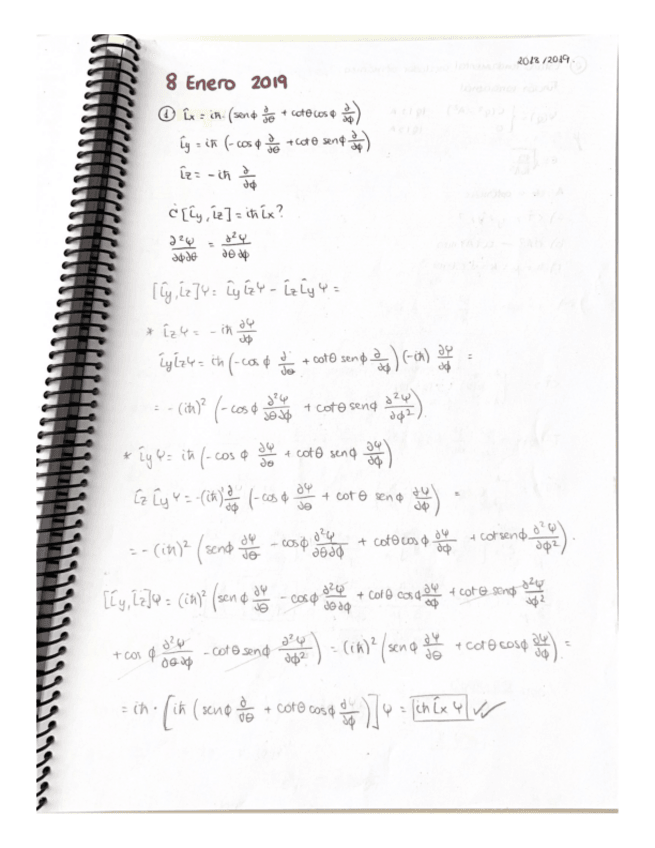 2018/2019.
8 Enero 2019
① L̂x = iħ (senϕ ∂/∂θ + cotθ cosϕ ∂/∂ϕ)
L̂y = iħ (-cosϕ ∂/∂θ + cotθ senϕ ∂/∂ϕ)
L̂z = -iħ ∂/∂ϕ
¿[L̂y, L̂z] = iħ L̂x?
∂²Ψ/∂ϕ∂θ = ∂²Ψ/∂θ∂ϕ
[L̂y, L̂z]Ψ = L̂y L̂z Ψ - L̂z L̂y Ψ =
* L̂z Ψ = -iħ ∂Ψ/∂ϕ
L̂y L̂z Ψ = iħ (-cosϕ ∂/∂θ + cotθ senϕ ∂/∂ϕ) (-iħ) ∂Ψ/∂ϕ =
= -(iħ)² (-cosϕ ∂²Ψ/∂θ∂ϕ + cotθ senϕ ∂²Ψ/∂ϕ²)
* L̂y Ψ = iħ (-cos ϕ ∂Ψ/∂θ + cotθ senϕ ∂Ψ/∂ϕ)
L̂z L̂y Ψ = -(iħ)² ∂/∂ϕ (-cosϕ ∂Ψ/∂θ + cotθ senϕ ∂Ψ/∂ϕ) =
= -(iħ)² (senϕ ∂Ψ/∂θ - cosϕ ∂²Ψ/∂θ∂ϕ + cotθ cosϕ ∂Ψ/∂ϕ + cotsenϕ ∂²Ψ/∂ϕ²).
[L̂y, L̂z]Ψ = (iħ)² (senϕ ∂Ψ/∂θ - cosϕ ∂²Ψ/∂θ∂ϕ + cotθ cosϕ ∂Ψ/∂ϕ + cotθ senϕ ∂²Ψ/∂ϕ²
+ cos ϕ ∂²Ψ/∂θ∂ϕ - cotθ senϕ ∂²Ψ/∂ϕ²) = (iħ)² (senϕ ∂Ψ/∂θ + cotθ cosϕ ∂Ψ/∂ϕ) =
= iħ · [iħ (senϕ ∂/∂θ + cotθ cosϕ ∂/∂ϕ)] Ψ = iħ L̂x Ψ ✓✓